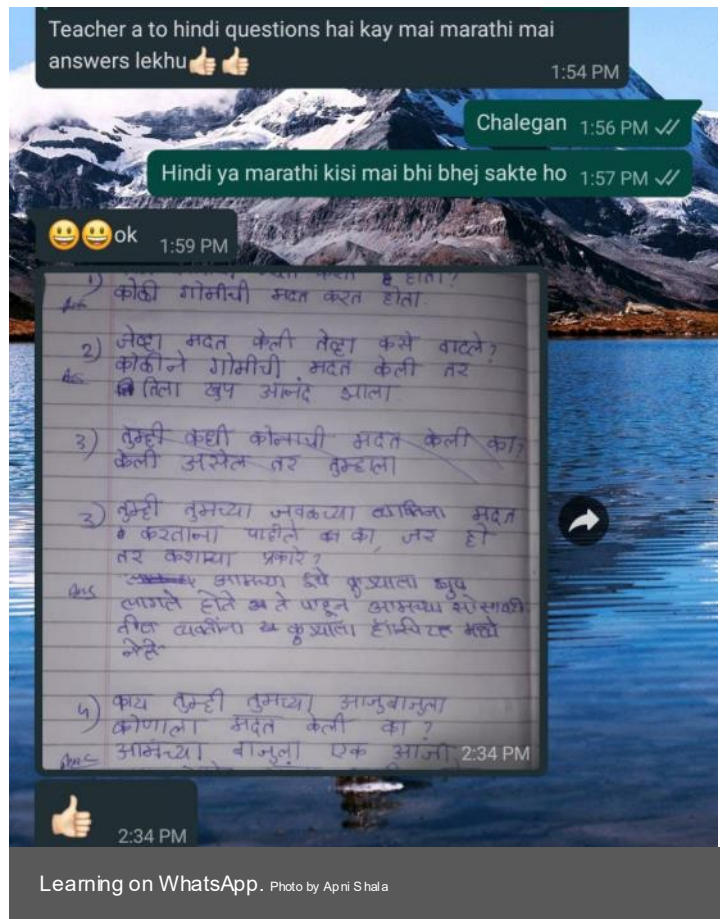 Teacher a to hindi questions hai kay mai marathi mai
answers lekhu👍🏻👍🏻
1:54 PM
Chalegan 1:56 PM
Hindi ya marathi kisi mai bhi bhej sakte ho 1:57 PM
😃😃ok 1:59 PM
1) होता?
Ans कोळी गोमीची मदत करत होता.
2) जेव्हा मदत केली तेव्हा कसे वाटले?
Ans कोळीने गोमीची मदत केली तर
तिला खुप आनंद झाला
3) तुम्ही कधी कोनाची मदत केली का?
केली असेल तर तुम्हाला
3) तुम्ही तुमच्या जवळच्या मदत
करताना पाहीले का, जर हो
तर कशाच्या प्रकारे?
Ans आमच्या इथे कुत्र्याला खुप
लागले होते ते पाहून आमच्या
व्यक्तींना कुत्र्याला हॉस्पिटल मध्ये
नेले
4) काय तुम्ही तुमच्या आजुबाजुला
कोणाला मदत केली का?
Ans आमच्या बाजुला एक आजी 2:34 PM
👍🏻 2:34 PM
Learning on WhatsApp. Photo by Apni Shala